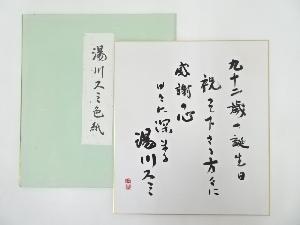 湯川スミ色紙
九十二歳の誕生日
祝って下さる方々に
感謝の心
日々に深まる
湯川スミ